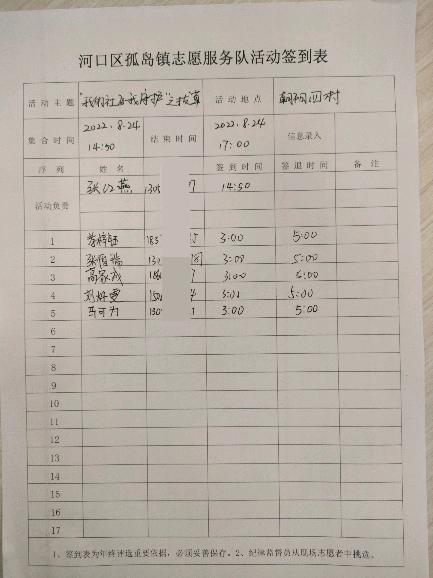 河口区孤岛镇志愿服务队活动签到表
活动主题 "我的社区我守护"之拔草 活动地点 朝阳四村
集合时间 2022.8.24 14:50 结束时间 2022.8.24 17:00 信息录入
序列 姓名 签到时间 签退时间 备注
活动负责 张红燕 130 7 14:50
1 183 5 3:00 5:00
2 13 3:00 5:00
3 高家成 7 3:00 5:00
4 150 4 3:00 5:00
5 马可为 130 1 3:00 5:00
6
7
8
9
10
11
12
13
14
15
16
17
1、签到表为年终评选重要依据，必须妥善保存。2、纪律监督员从现场志愿者中挑选。